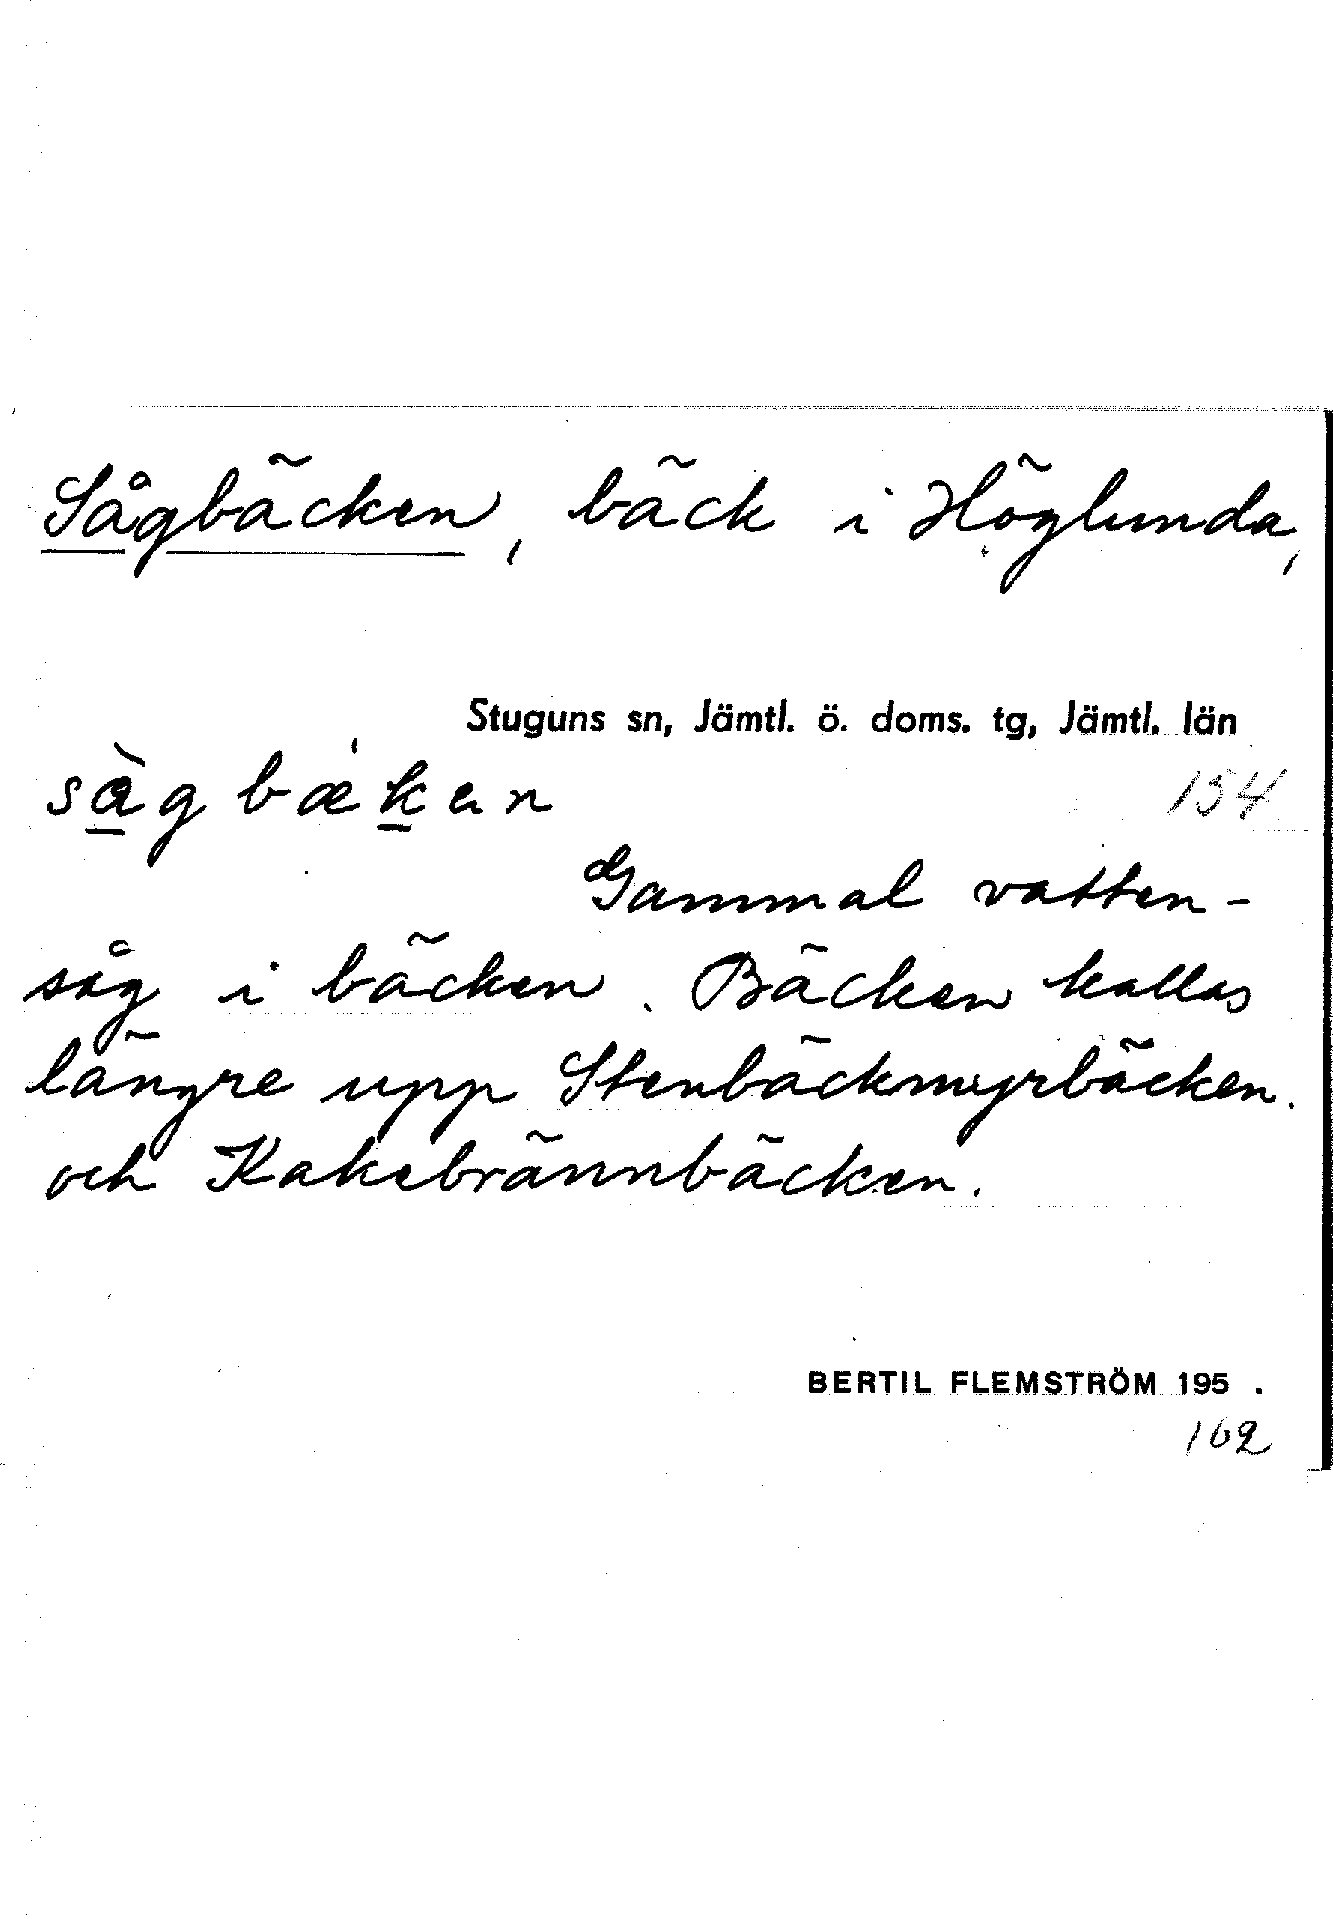 Sågbäcken, bäck i Höglunda,
Stuguns sn, Jämtl. ö. doms. tg, Jämtl. län
sàg bæ̀ken
154
Gammal vatten-
såg i bäcken. Bäcken kallas
längre upp Stenbäckmyrbäcken.
och Kakebrännbäcken.
BERTIL FLEMSTRÖM 195 .
162